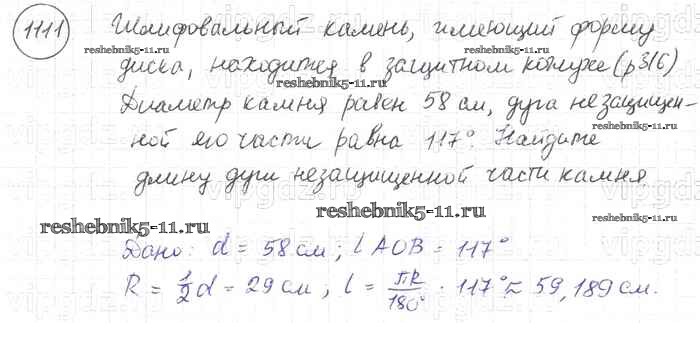 1111 Шлифовальный камень, имеющий форму
reshebnik5-11.ru
диска, находится в защитном кожухе (р 316)
reshebnik5-11.ru
Диаметр камня равен 58 см, дуга незащищен-
ной его части равна 117°. Найдите
reshebnik5-11.ru
длину дуги незащищенной части камня
reshebnik5-11.ru
reshebnik5-11.ru
reshebnik5-11.ru
Дано: d = 58 см; ∠AOB = 117°
R = 1/2 d = 29 см; l = πR/180° · 117° ≈ 59,189 см.